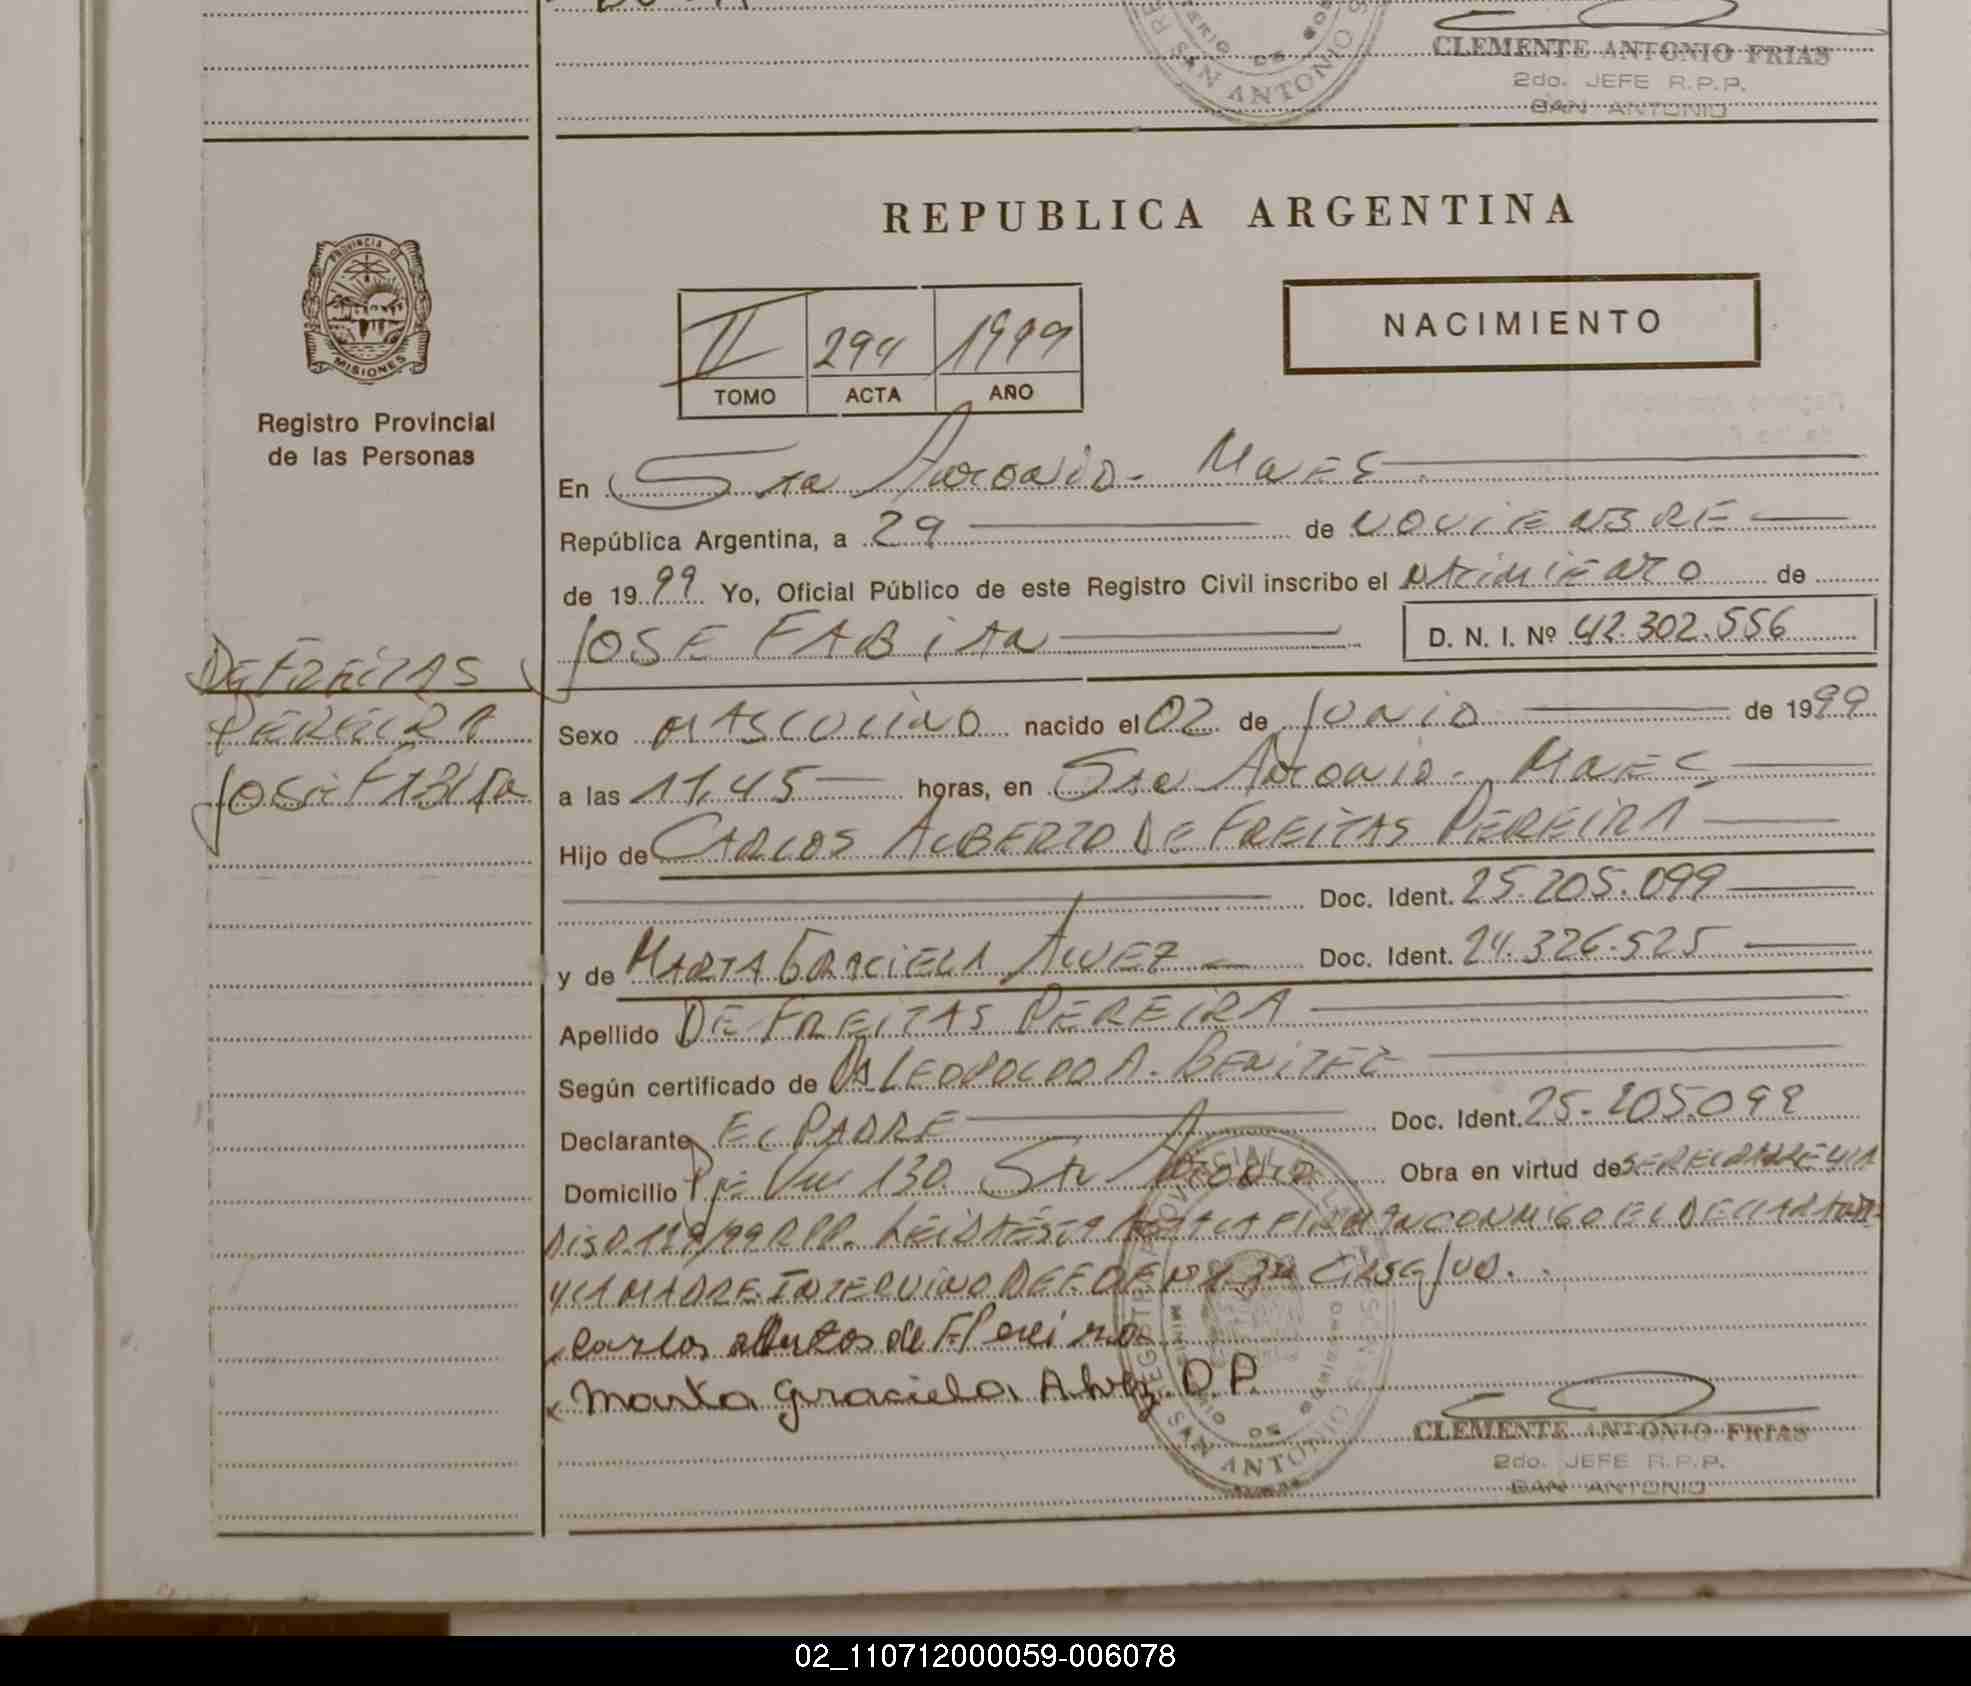 CLEMENTE ANTONIO FRIAS
2do. JEFE R.P.P.
SAN ANTONIO
SAN ANTONIO
PROVINCIA DE
MISIONES
Registro Provincial
de las Personas
REPUBLICA ARGENTINA
NACIMIENTO
II 294 1999
TOMO ACTA AÑO
En San Antonio - Mnes
República Argentina, a 29 de NOVIEMBRE
de 1999 Yo, Oficial Público de este Registro Civil inscribo el NACIMIENTO de
JOSE FABIAN D. N. I. Nº 42.302.556
DE FREITAS
PEREIRA
JOSE FABIAN
Sexo MASCULINO nacido el 02 de JUNIO de 1999
a las 11,45 horas, en San Antonio - Mnes
Hijo de CARLOS ALBERTO DE FREITAS PEREIRA
Doc. Ident. 25.205.099
y de MARTA GRACIELA ALVEZ Doc. Ident. 24.326.525
Apellido DE FREITAS PEREIRA
Según certificado de LEOPOLDO A. BENITEZ
Declarante EL PADRE Doc. Ident. 25.205.099
Domicilio 130 San Antonio Obra en virtud de
DISP. 129/99 RPP. LEIDA ESTA ACTA LA FIRMAN CONMIGO EL DECLARANTE
Y LA MADRE. INTERVINO DEF. DE Nº 1
Carlos alberto de F Pereira
Marta graciela Alvez D.P.
SAN ANTONIO
CLEMENTE ANTONIO FRIAS
2do. JEFE R.P.P.
SAN ANTONIO
02_110712000059-006078